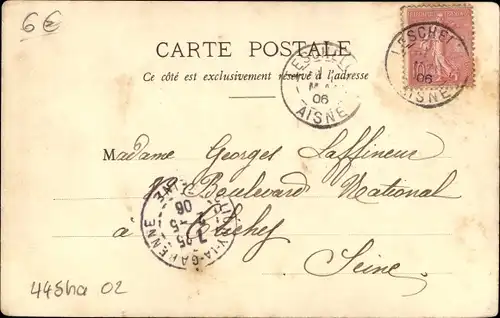 6€
CARTE POSTALE
Ce côté est exclusivement réservé à l'adresse
LESCHELL
MAI
06
AISNE
LESCHELL
06
AISNE
Madame Georges Laffineur
Boulevard National
à Clichy
Seine
-LA-GARENNE
7 25
5
06
44Sha 02